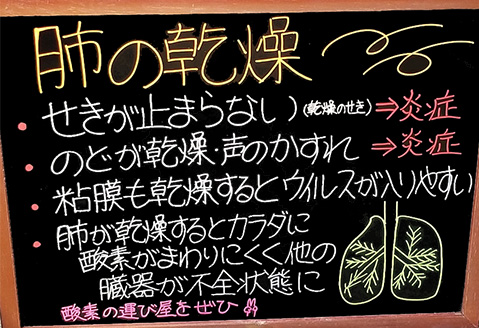 肺の乾燥
・せきが止まらない)(乾燥のせき)⇒炎症
・のどが乾燥・声のかすれ ⇒炎症
・粘膜も乾燥するとウイルスが入りやすい
・肺が乾燥するとカラダに
酸素がまわりにくく他の
臓器が不全状態に
酸素の運び屋をぜひ